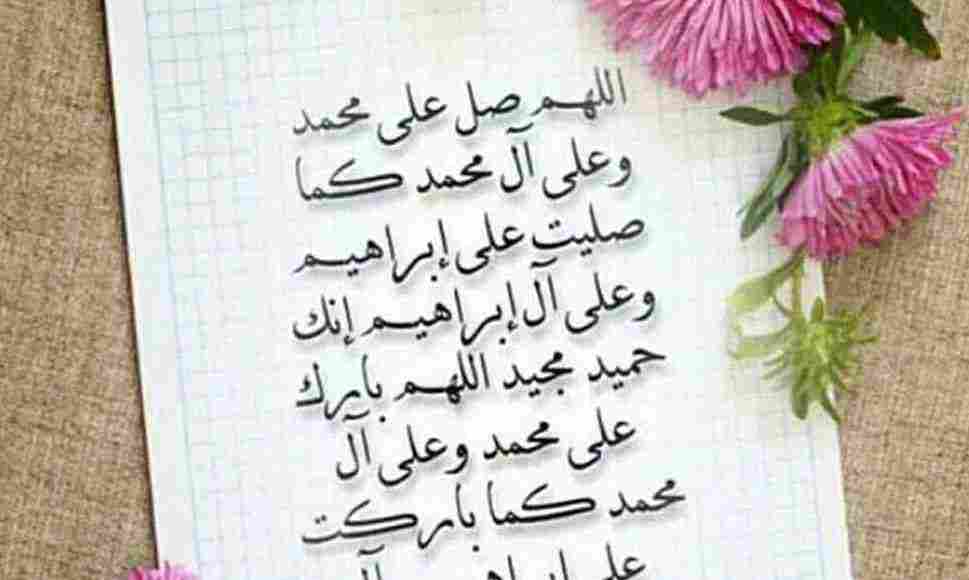 اللهم صل على محمد
وعلى آل محمد كما
صليت على إبراهيم
وعلى آل إبراهيم إنك
حميد مجيد اللهم بارك
على محمد وعلى آل
محمد كما باركت
على إبراهيم آل